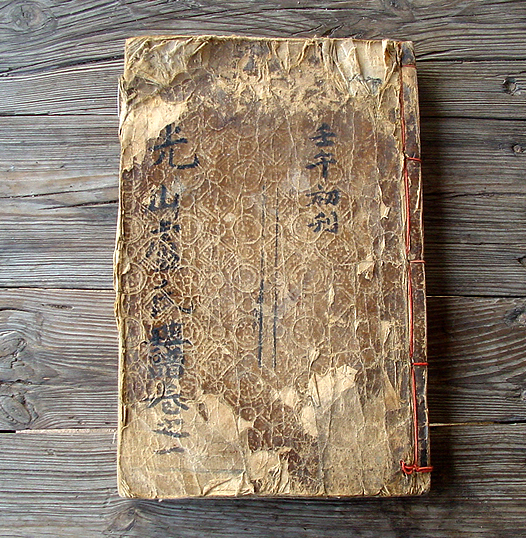 壬午初刊
光山氏譜卷之一